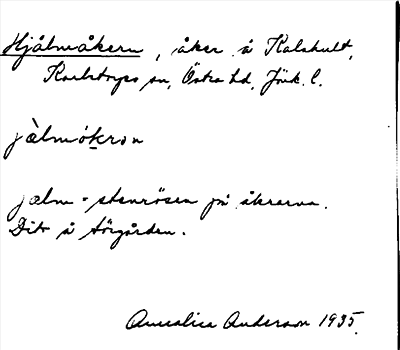 Hjälmåkern, åker å Kalshult,
Karlstorps sn, Östra hd, Jönk. l.
jàlmókron
jalm = stenrösen på åkrarna.
Dito å Sörgården.
Annalisa Anderson 1935.